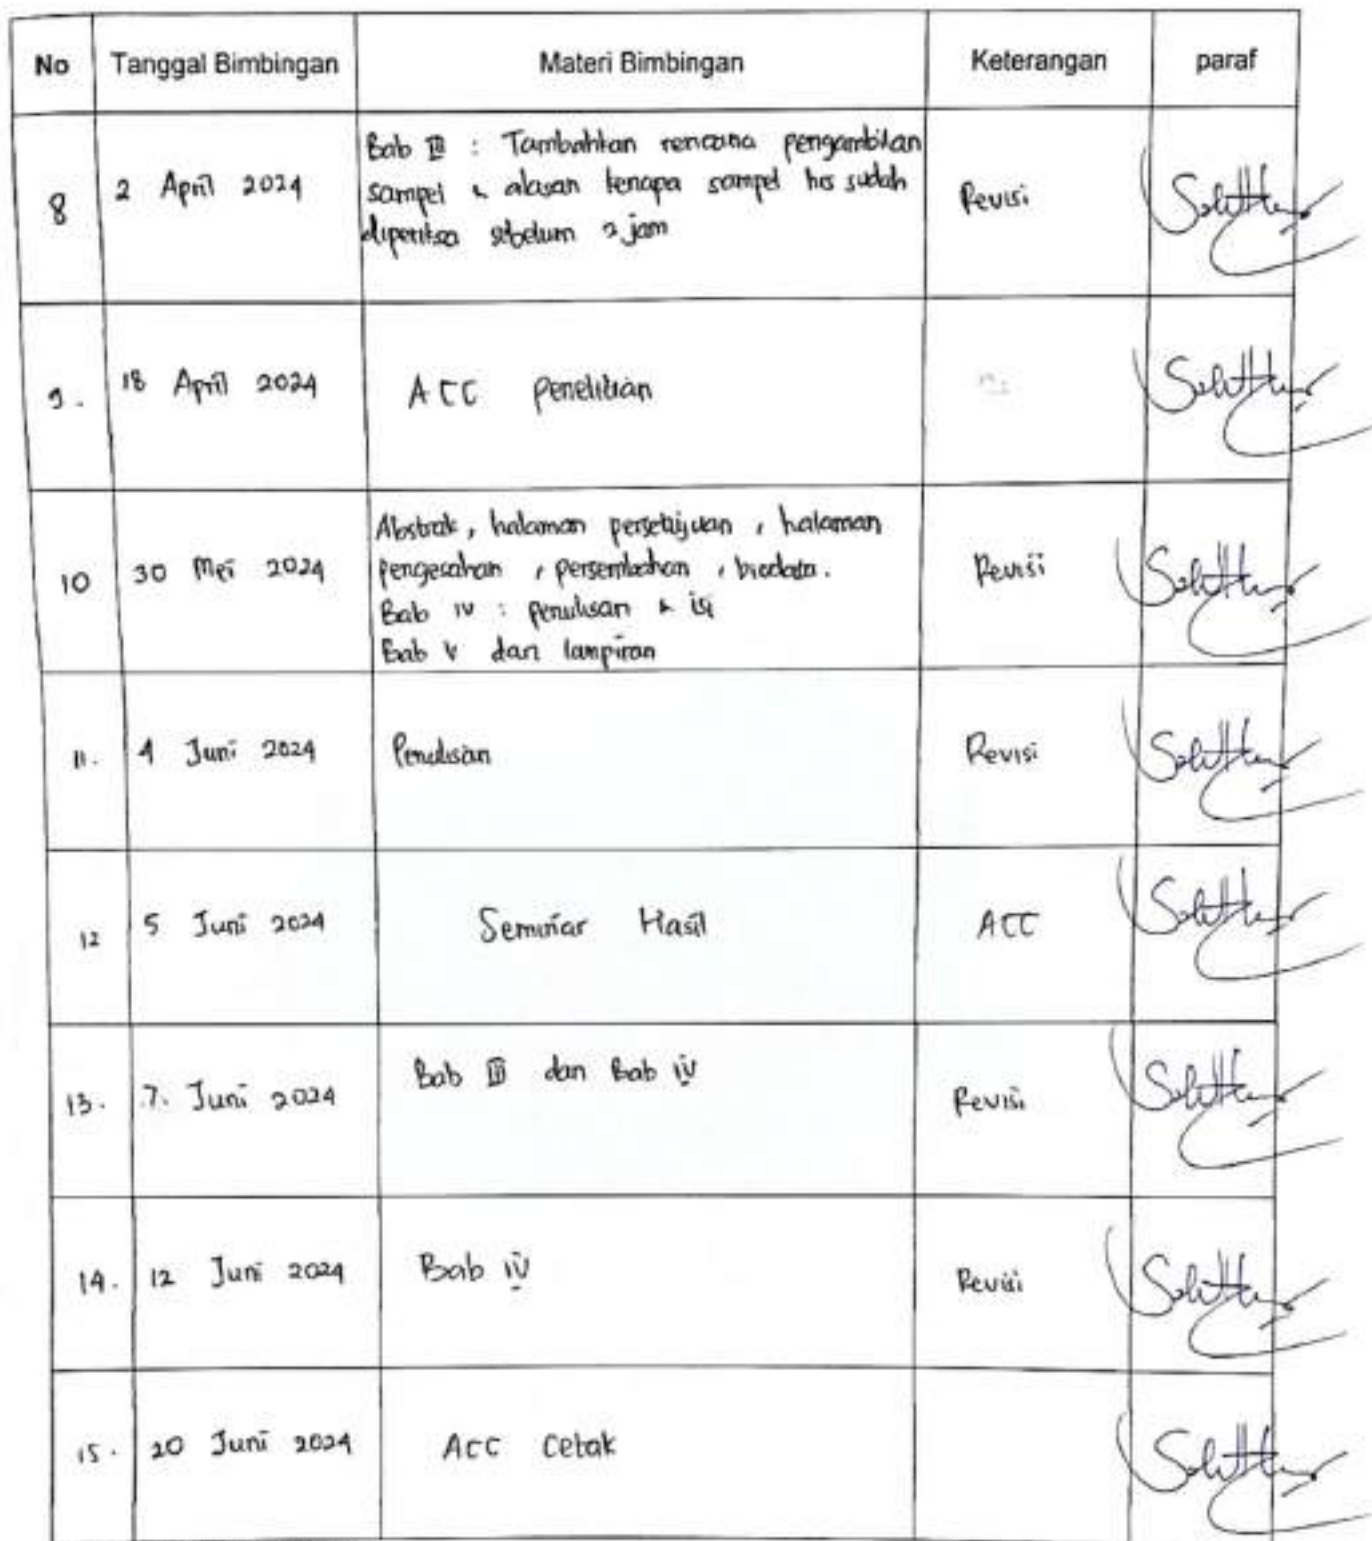 No Tanggal Bimbingan Materi Bimbingan Keterangan paraf
8 2 April 2024 Bab III : Tambahkan rencana pengambilan Revisi
sampel & alasan kenapa sampel hrs sudah
diperiksa sebelum 2 jam
9. 18 April 2024 ACC penelitian
10 30 Mei 2024 Abstrak, halaman persetujuan, halaman Revisi
pengesahan, persembahan, biodata.
Bab IV : penulisan & isi
Bab V dan lampiran
11. 4 Juni 2024 Penulisan Revisi
12 5 Juni 2024 Seminar Hasil ACC
13. 7. Juni 2024 Bab III dan Bab IV Revisi
14. 12 Juni 2024 Bab IV Revisi
15. 20 Juni 2024 ACC Cetak